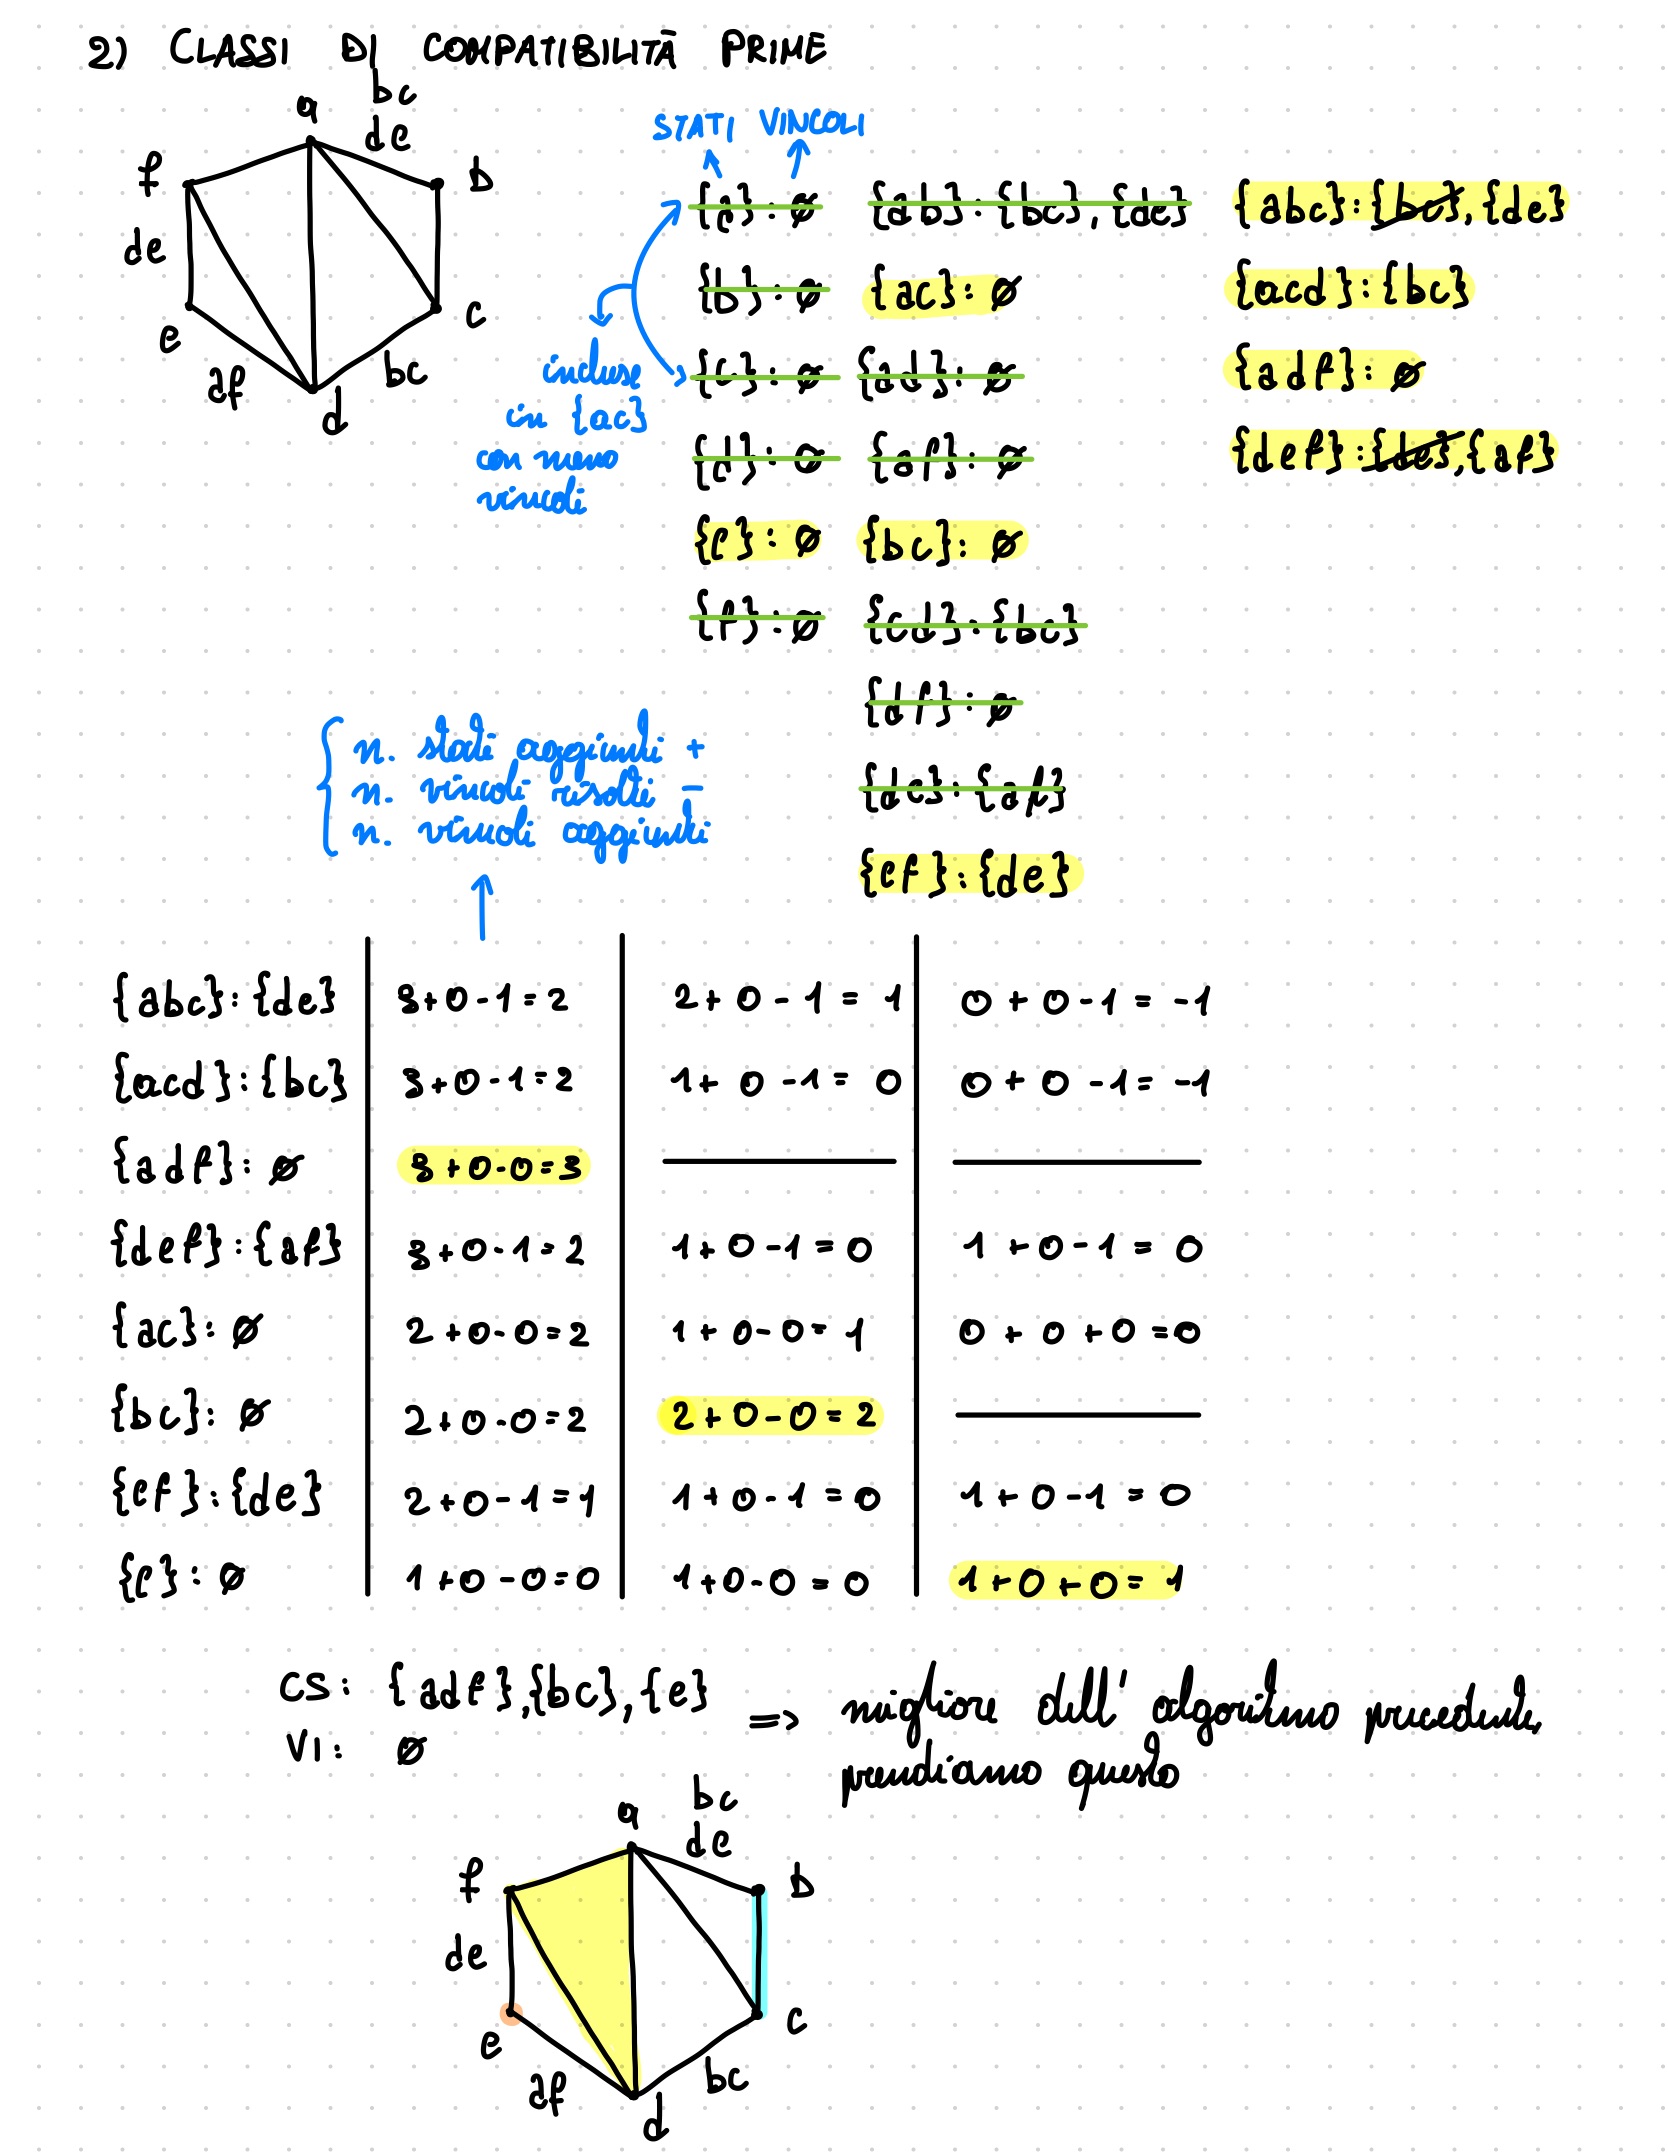 2) CLASSI DI COMPATIBILITÀ PRIME
a bc
de
f b
de
e c
af bc
d
STATI VINCOLI
{a}: ∅ {ab}: {bc}, {de} {abc}: {bc}, {de}
{b}: ∅ {ac}: ∅ {acd}: {bc}
{c}: ∅ {ad}: ∅ {adf}: ∅
{d}: ∅ {af}: ∅ {def}: {de}, {af}
{e}: ∅ {bc}: ∅
{f}: ∅ {cd}: {bc}
{df}: ∅
{de}: {af}
{ef}: {de}
incluse
in {ac}
con meno
vincoli
n. stati aggiunti +
n. vincoli risolti −
n. vincoli aggiunti
{abc}: {de} 3+0-1=2 2+0-1=1 0+0-1=-1
{acd}: {bc} 3+0-1=2 1+0-1=0 0+0-1=-1
{adf}: ∅ 3+0-0=3
{def}: {af} 3+0-1=2 1+0-1=0 1+0-1=0
{ac}: ∅ 2+0-0=2 1+0-0=1 0+0+0=0
{bc}: ∅ 2+0-0=2 2+0-0=2
{ef}: {de} 2+0-1=1 1+0-1=0 1+0-1=0
{e}: ∅ 1+0-0=0 1+0-0=0 1+0+0=1
CS: {adf}, {bc}, {e} => migliore dell' algoritmo precedente,
VI: ∅ prendiamo questo
a bc
de
f b
de
e c
af bc
d